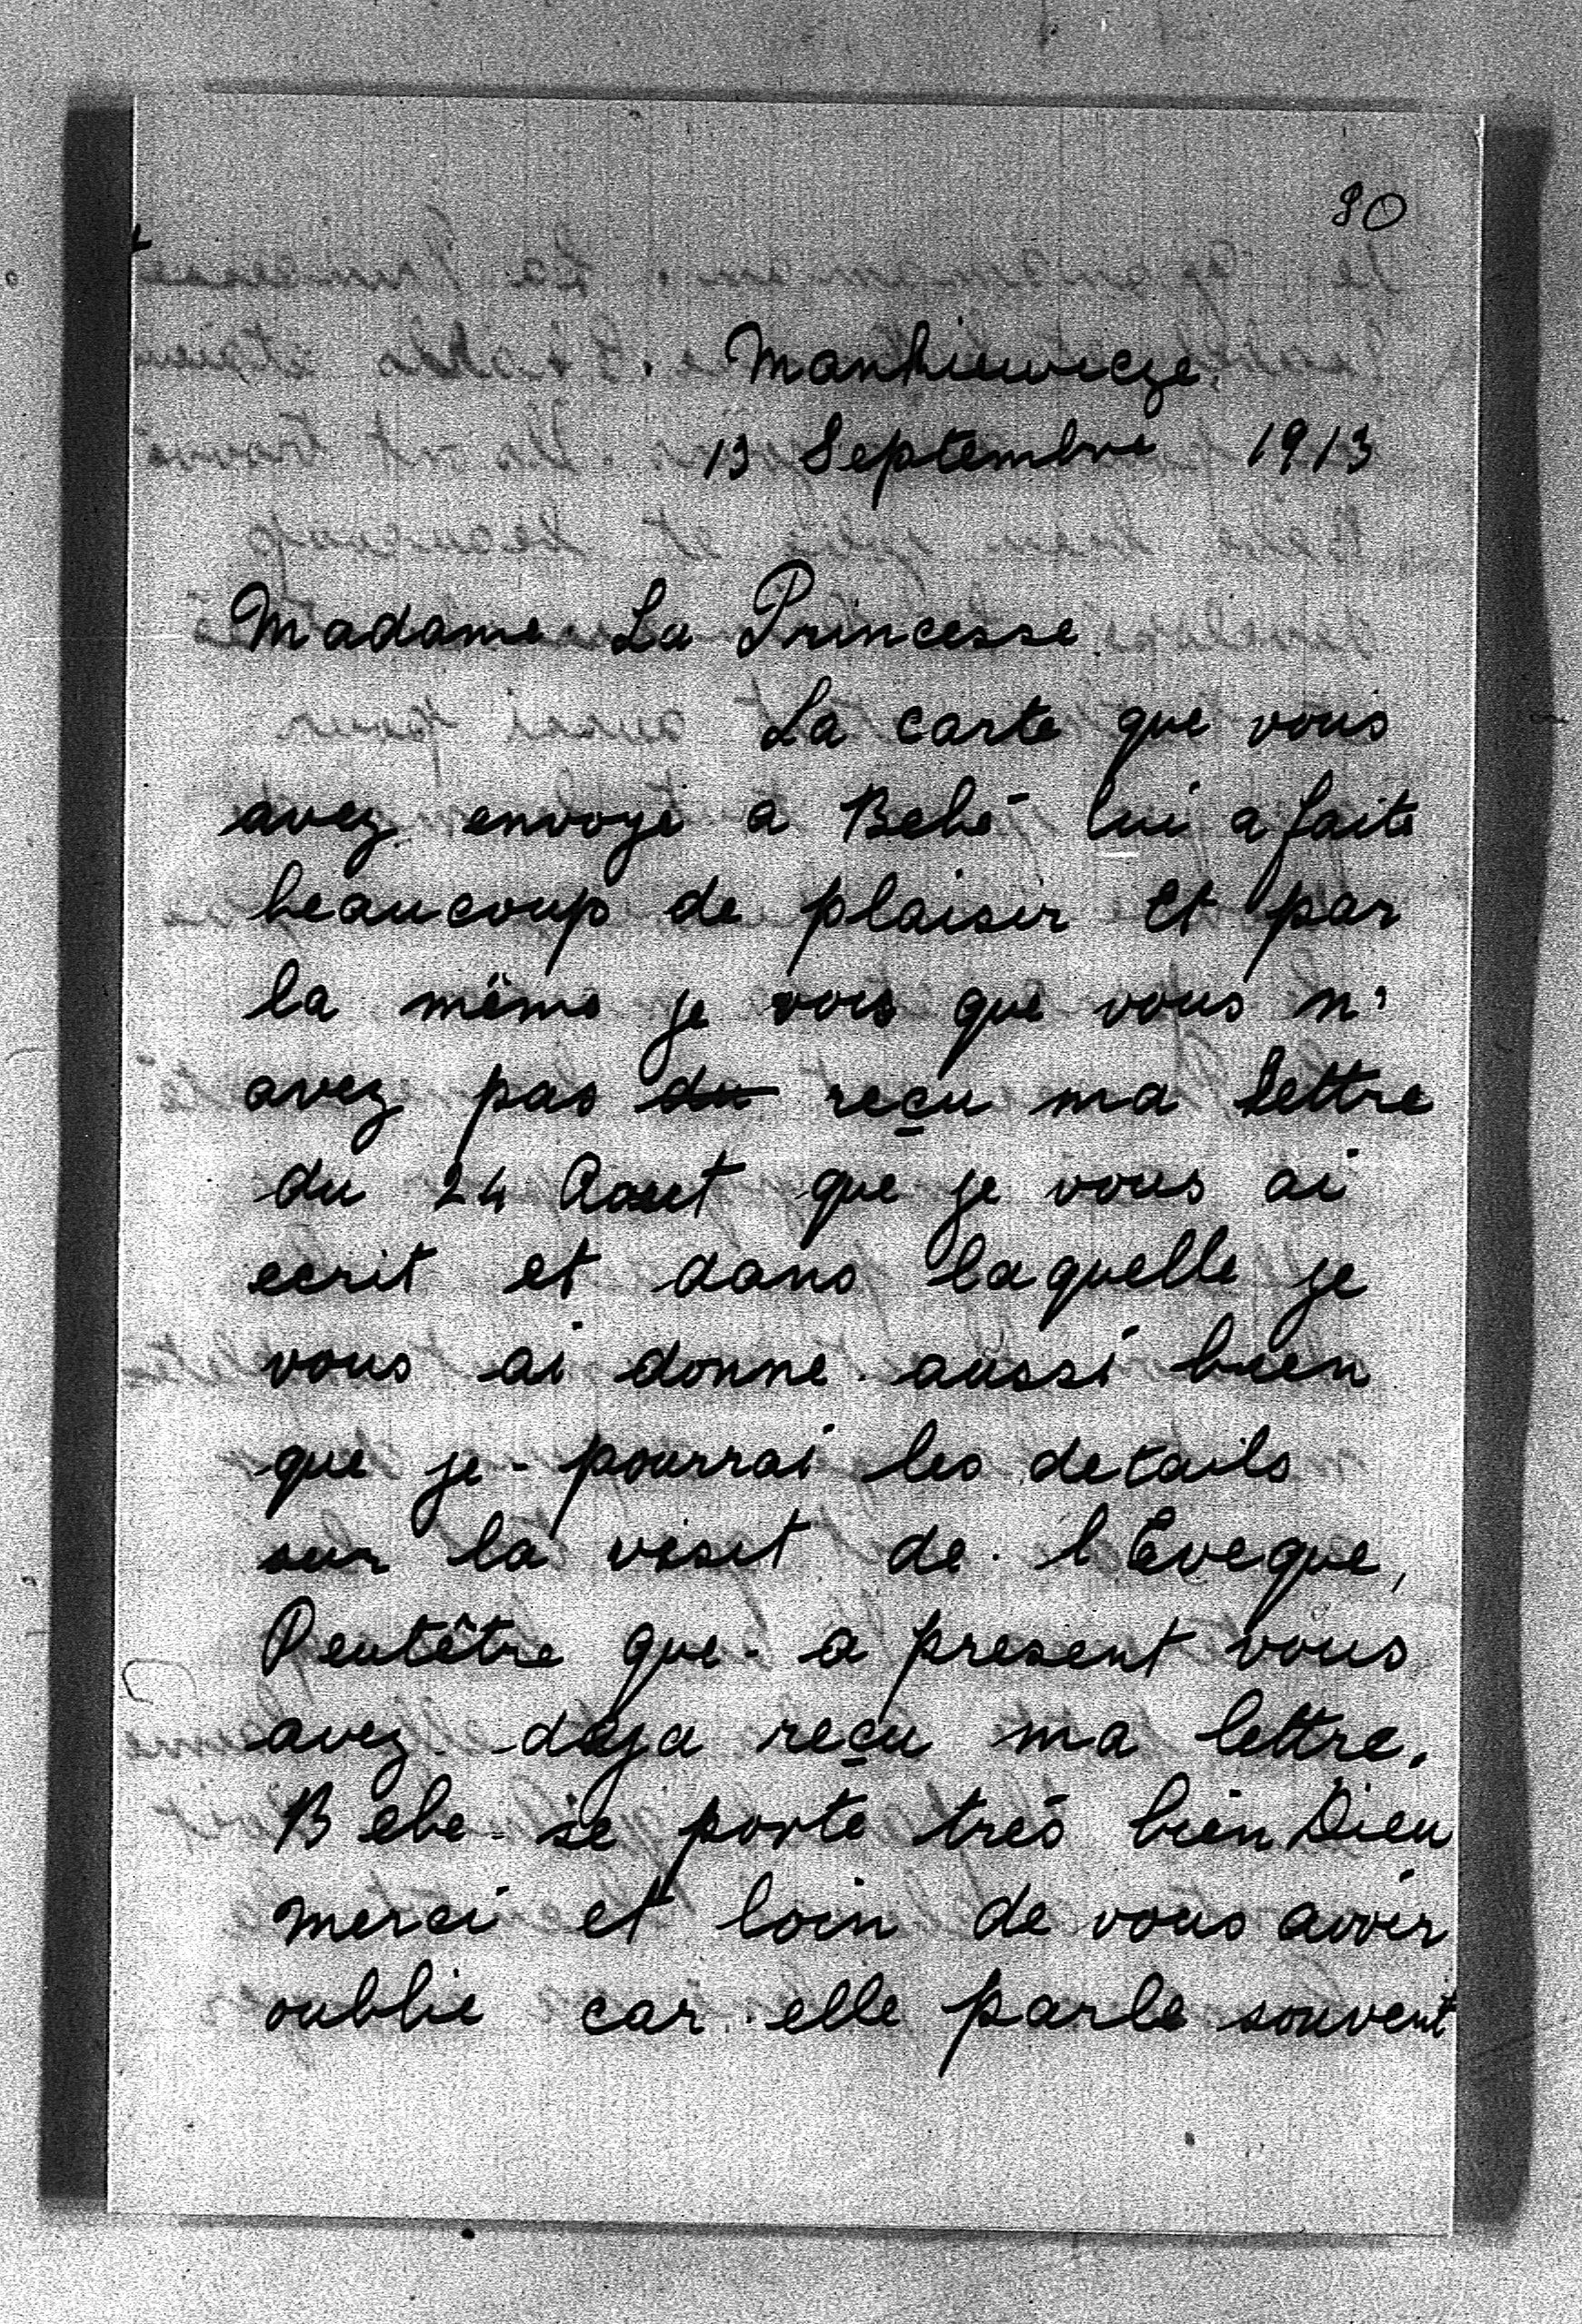 90
Mankiewicze
13 Septembre 1913
Madame La Princesse
La carte que vous
avez envoyé a Bebé lui a faite
beaucoup de plaisir Et par
la même je vois que vous n'
avez pas du reçu ma Lettre
du 24 Aout que je vous ai
ecrit et dans laquelle je
vous ai donne aussi bien
que je pourrai les details
sur la visit de l'Eveque,
Peutêtre que a present vous
avez deja reçu ma lettre.
Bebe se porte très bien Dieu
merci et loin de vous avoir
oublie car elle parle souvent